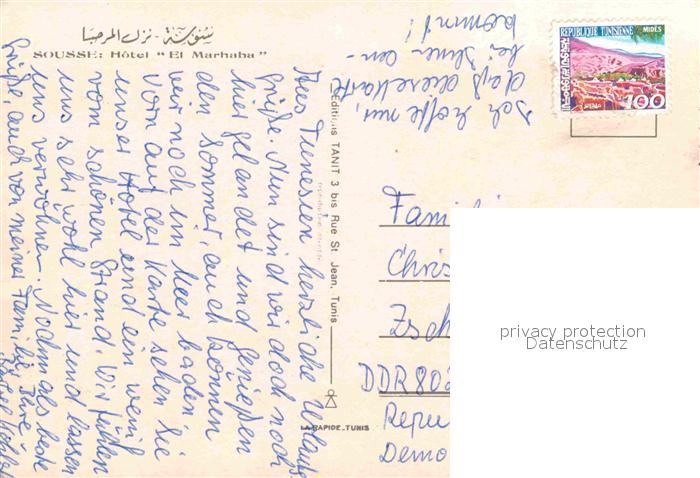 سوسة - نزل المرحبا
SOUSSE: Hôtel "El Marhaba"
Aus Tunesien herzliche Urlaubs-
grüße. Nun sind wir doch noch
hier gelandet und genießen
den Sommer, auch können
wir noch im Meer baden.
Vorn auf der Karte sehen Sie
unser Hotel und ein wenig
vom schönen Strand. Wir fühlen
uns sehr wohl hier und lassen
uns verwöhnen. Nochmals beste
Grüße, auch von meiner Familie, Ihre
Ich hoffe nur,
daß diese Karte
bei Ihnen an-
kommt!
Editions TANIT 3 bis Rue St Jean, Tunis
LA RAPIDE_TUNIS
REPUBLIQUE TUNISIENNE
MIDÈS
100
Famili
Chris
Zsch
DDR 802
Repu
Demo
privacy protection
Datenschutz